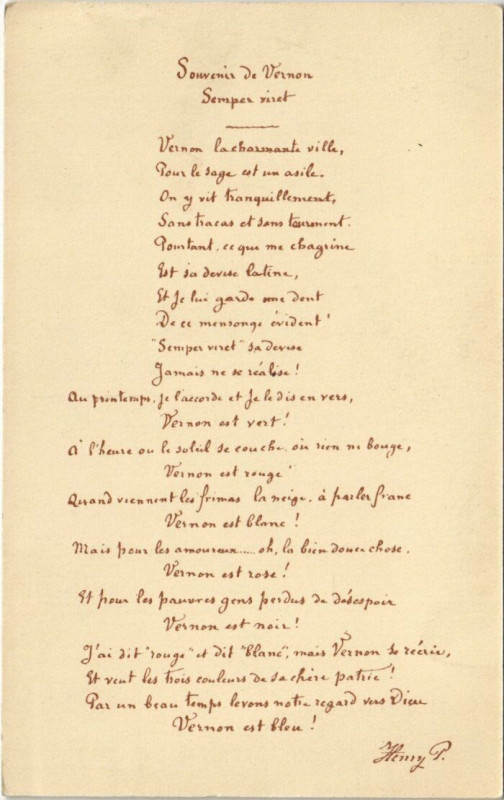 Souvenir de Vernon
Semper viret
Vernon la charmante ville,
Pour le sage est un asile.
On y vit tranquillement,
Sans tracas et sans tourment.
Pourtant, ce que me chagrine
Est sa devise latine,
Et Je lui garde une dent
De ce mensonge évident !
"Semper viret" sa devise
Jamais ne se réalise !
Au printemps, je l'accorde et Je le dis en vers,
Vernon est vert !
A l'heure ou le soleil se couche, où rien ne bouge,
Vernon est rouge !
Quand viennent les frimas la neige, à parler franc
Vernon est blanc !
Mais pour les amoureux..... oh, la bien douce chose,
Vernon est rose !
Et pour les pauvres gens perdus de désespoir
Vernon est noir !
J'ai dit "rouge" et dit "blanc", mais Vernon se récrie,
Et veut les trois couleurs de sa chère patrie !
Par un beau temps levons notre regard vers Dieu
Vernon est bleu !
Henry P.